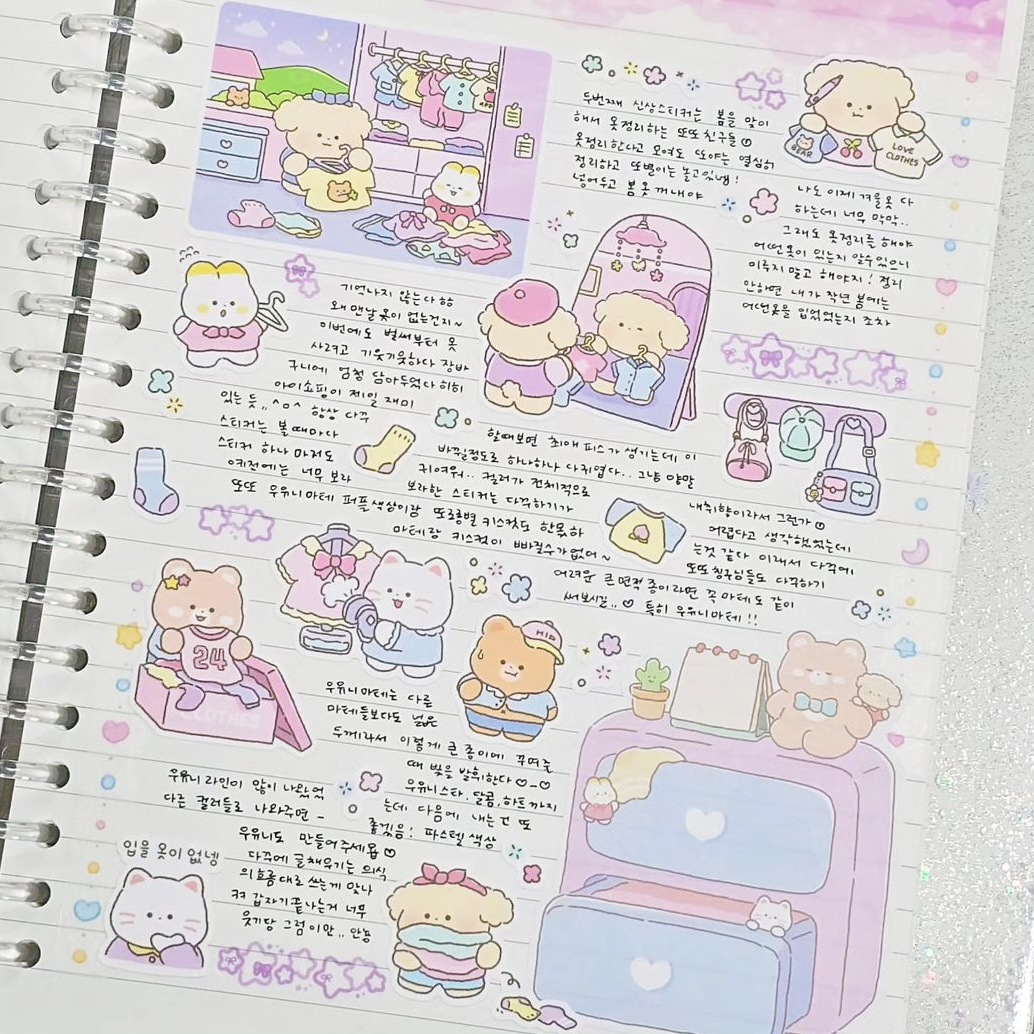 두번째 신상스티커는 봄을 맞이
해서 옷정리하는 또또친구들
옷정리한다고 모여도 또야는 열심히
정리하고 또별이는 놀고있넹!
넣어두고 봄옷 꺼내야
BEAR
LOVE
CLOTHES
나도 이제 겨울옷 다
하는데 너무 막막..
그래도 옷정리를 해야
어떤옷이 있는지 알수있으니
미루지 말고 해야지! 정리
안하면 내가 작년 봄에는
어떤옷을 입었었는지 조차
기억나지 않는다
왜 맨날 옷이 없는건지~
이번에도 벌써부터 옷
사려고 기웃기웃하다 장바
구니에 엄청 담아두었다 히히
아이쇼핑이 제일 재미
있는 듯.. ^o^ 항상 다꾸
스티커는 볼때마다
스티커 하나 마저도
너무 보라
할때보면 최애 피스가 생기는데 이
바뀔정도로 하나하나 다귀엽다.. 그냥 양말
귀여워.. 컬러가 전체적으로
보라한 스티커는 다꾸하기가
또또 우유니마테 퍼플색상이랑 또로롱별 키스컷도 한몫하
마테랑 키스컷이 빠질수가없어~
내취향이라서 그런가
어렵다고 생각했었는데
는것 같다 이래서 다꾸에
또또칭구님들도 다꾸하기
어려운 큰 면적 종이라면 꼭 마테도 같이
써보시길..♡ 특히 우유니마테!!
24
CLOTHES
HIP
우유니마테는 다른
마테들보다도 넓은
두께라서 이렇게 큰종이에 꾸며줄
때 빛을 발휘한다♡-♡
우유니스타, 달콤, 하트까지
우유니 라인이 많이 나왔었
는데 다음에 내는건 또
다른 컬러들로 나와주면 -
좋겠음! 파스텔 색상
우유니도 만들어주세욥♡
다꾸에 글채우기는 의식
의흐름대로 쓰는게 맞나
ㅋㅋ 갑자기끝나는거 너무
웃기당 그럼이만.. 안뇽
입을 옷이 없넹